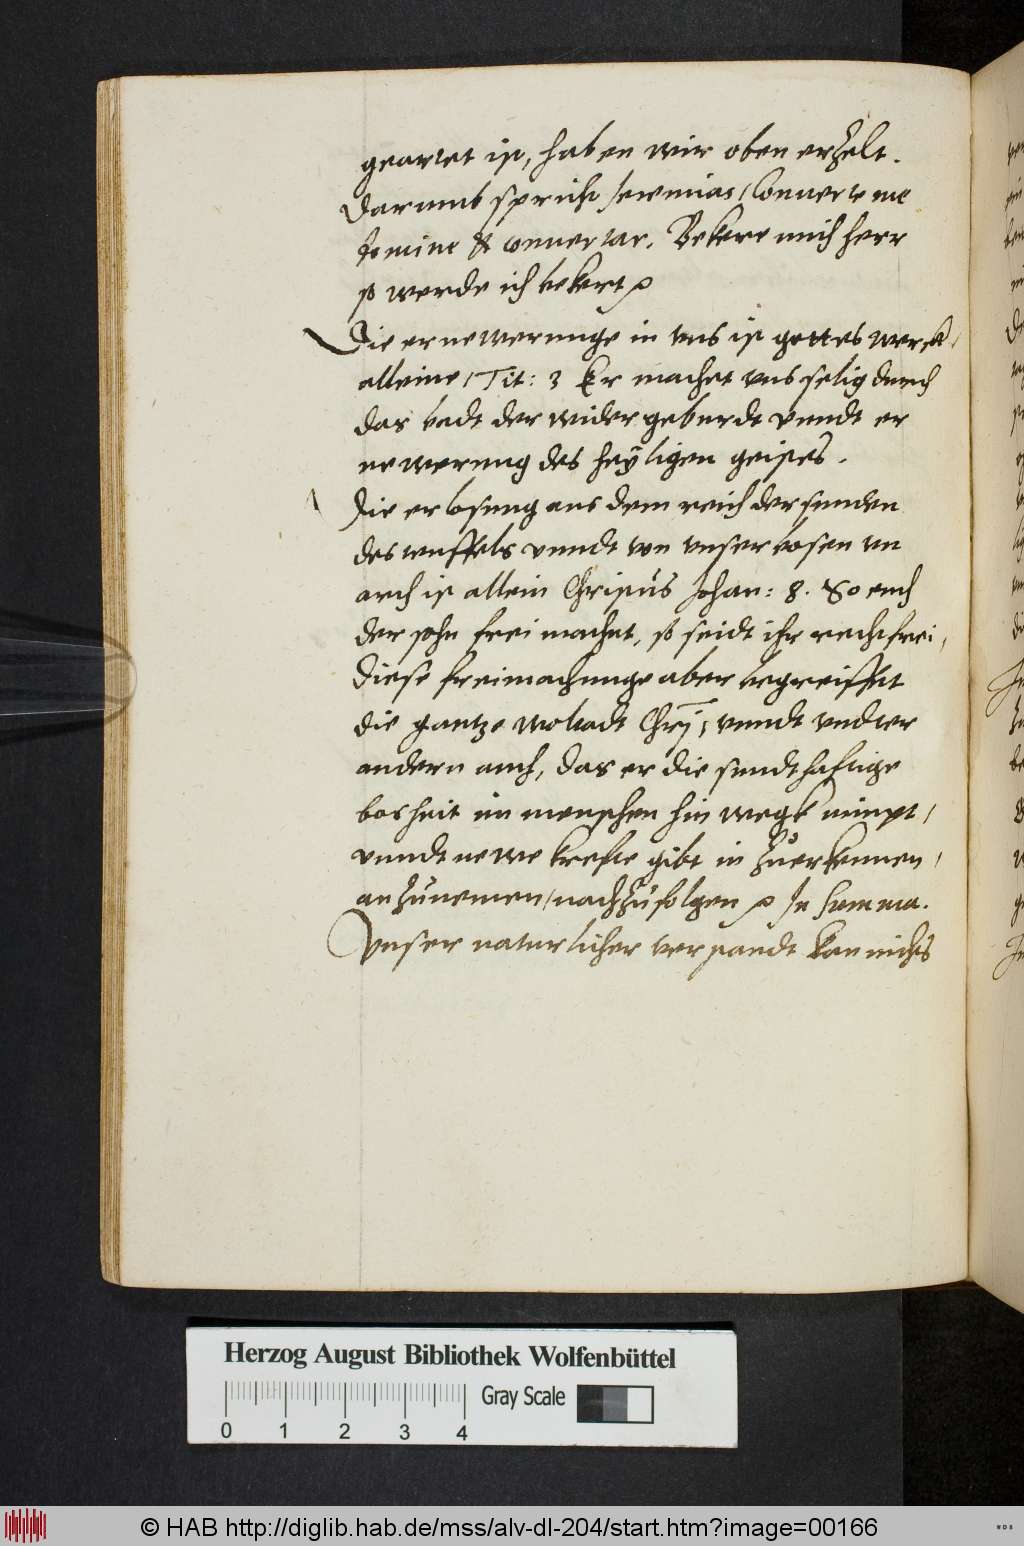 geartet ist, haben wir oben erzelt.
Darumb spricht Jeremias / Conuerte me
domine & conuertar. Bekere mich herr
so werde ich bekert
Die ernewerunge in vns ist gottes werck
alleine / Tit: 3 Er machet vns selig durch
das badt der widergeburdt vnndt er
newerung des heyligen geistes.
Die erlosung aus dem reich der sunden
des teuffels vnndt von vnser bosen
arth ist allein Christus Johan: 8. So euch
der sohn frei machet, so seidt ihr recht frei,
Diese freimachunge aber begreiffet
die gantze woltadt Chri, vnndt vndter
andern auch, das er die sundthafftige
bosheit im menschen hin wegk nimpt /
vnndt newe krefte gibt in zuerkennen /
anzunemen / nachzufolgen In summa.
Vnser naturlicher verstandt kan nichts
Herzog August Bibliothek Wolfenbüttel
Gray Scale
0 1 2 3 4
© HAB http://diglib.hab.de/mss/alv-dl-204/start.htm?image=00166